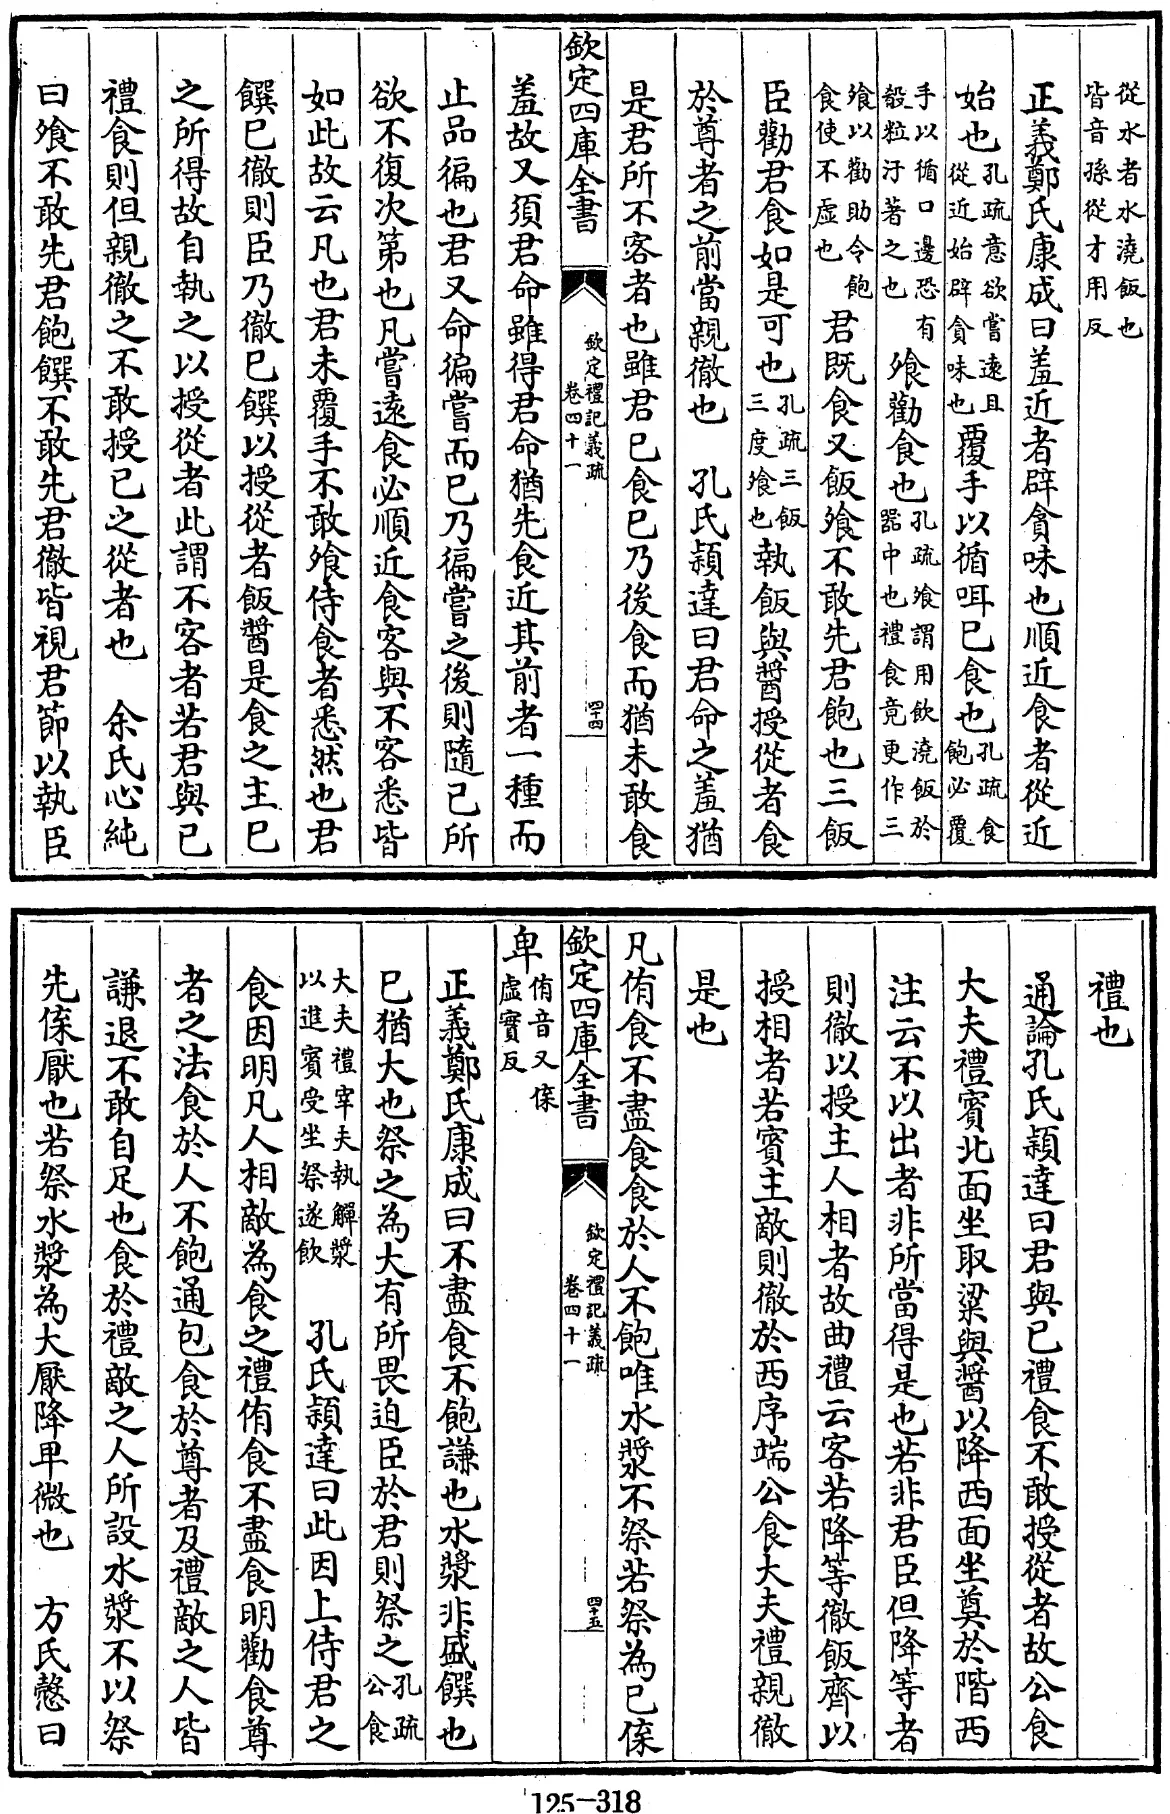 從水者水澆飯也
皆音孫從才用反
正義鄭氏康成曰羞近者辟貪味也順近食者從近
始也孔疏意欲嘗逺且從近始辟貪味也覆手以循咡已食也孔疏食飽必覆
手以循口邊恐有殽粒汙著之也飱勸食也孔疏飱謂用飲澆飯於器中也禮食竟更作三
飱以勸助令飽食使不虚也君既食又飯飱不敢先君飽也三飯
臣勸君食如是可也孔疏三飯三度飱也執飯與醬授從者食
於尊者之前當親徹也　孔氏穎達曰君命之羞猶
是君所不客者也雖君已食已乃後食而猶未敢食
欽定四庫全書
欽定禮記義疏
卷四十一
四十四
羞故又須君命雖得君命猶先食近其前者一種而
止品徧也君又命徧嘗而已乃徧嘗之後則隨己所
欲不復次第也凡嘗逺食必順近食客與不客悉皆
如此故云凡也君未覆手不敢飱侍食者悉然也君
饌已徹則臣乃徹已饌以授從者飯醬是食之主已
之所得故自執之以授從者此謂不客者若君與已
禮食則但親徹之不敢授已之從者也　余氏心純
曰飱不敢先君飽饌不敢先君徹皆視君節以執臣
禮也
通論孔氏穎達曰君與已禮食不敢授從者故公食
大夫禮賓北面坐取粱與醬以降西面坐奠於階西
注云不以出者非所當得是也若非君臣但降等者
則徹以授主人相者故曲禮云客若降等徹飯齊以
授相者若賓主敵則徹於西序端公食大夫禮親徹
是也
凡侑食不盡食食於人不飽唯水漿不祭若祭為已㒆
欽定四庫全書
欽定禮記義疏
卷四十一
四十五
卑侑音又㒆虚實反
正義鄭氏康成曰不盡食不飽謙也水漿非盛饌也
已猶大也祭之為大有所畏迫臣於君則祭之孔疏公食
大夫禮宰夫執觶漿以進賓受坐祭遂飲　孔氏穎達曰此因上侍君之
食因明凡人相敵為食之禮侑食不盡食明勸食尊
者之法食於人不飽通包食於尊者及禮敵之人皆
謙退不敢自足也食於禮敵之人所設水漿不以祭
先㒆厭也若祭水漿為大厭降卑微也　方氏慤曰
125-318